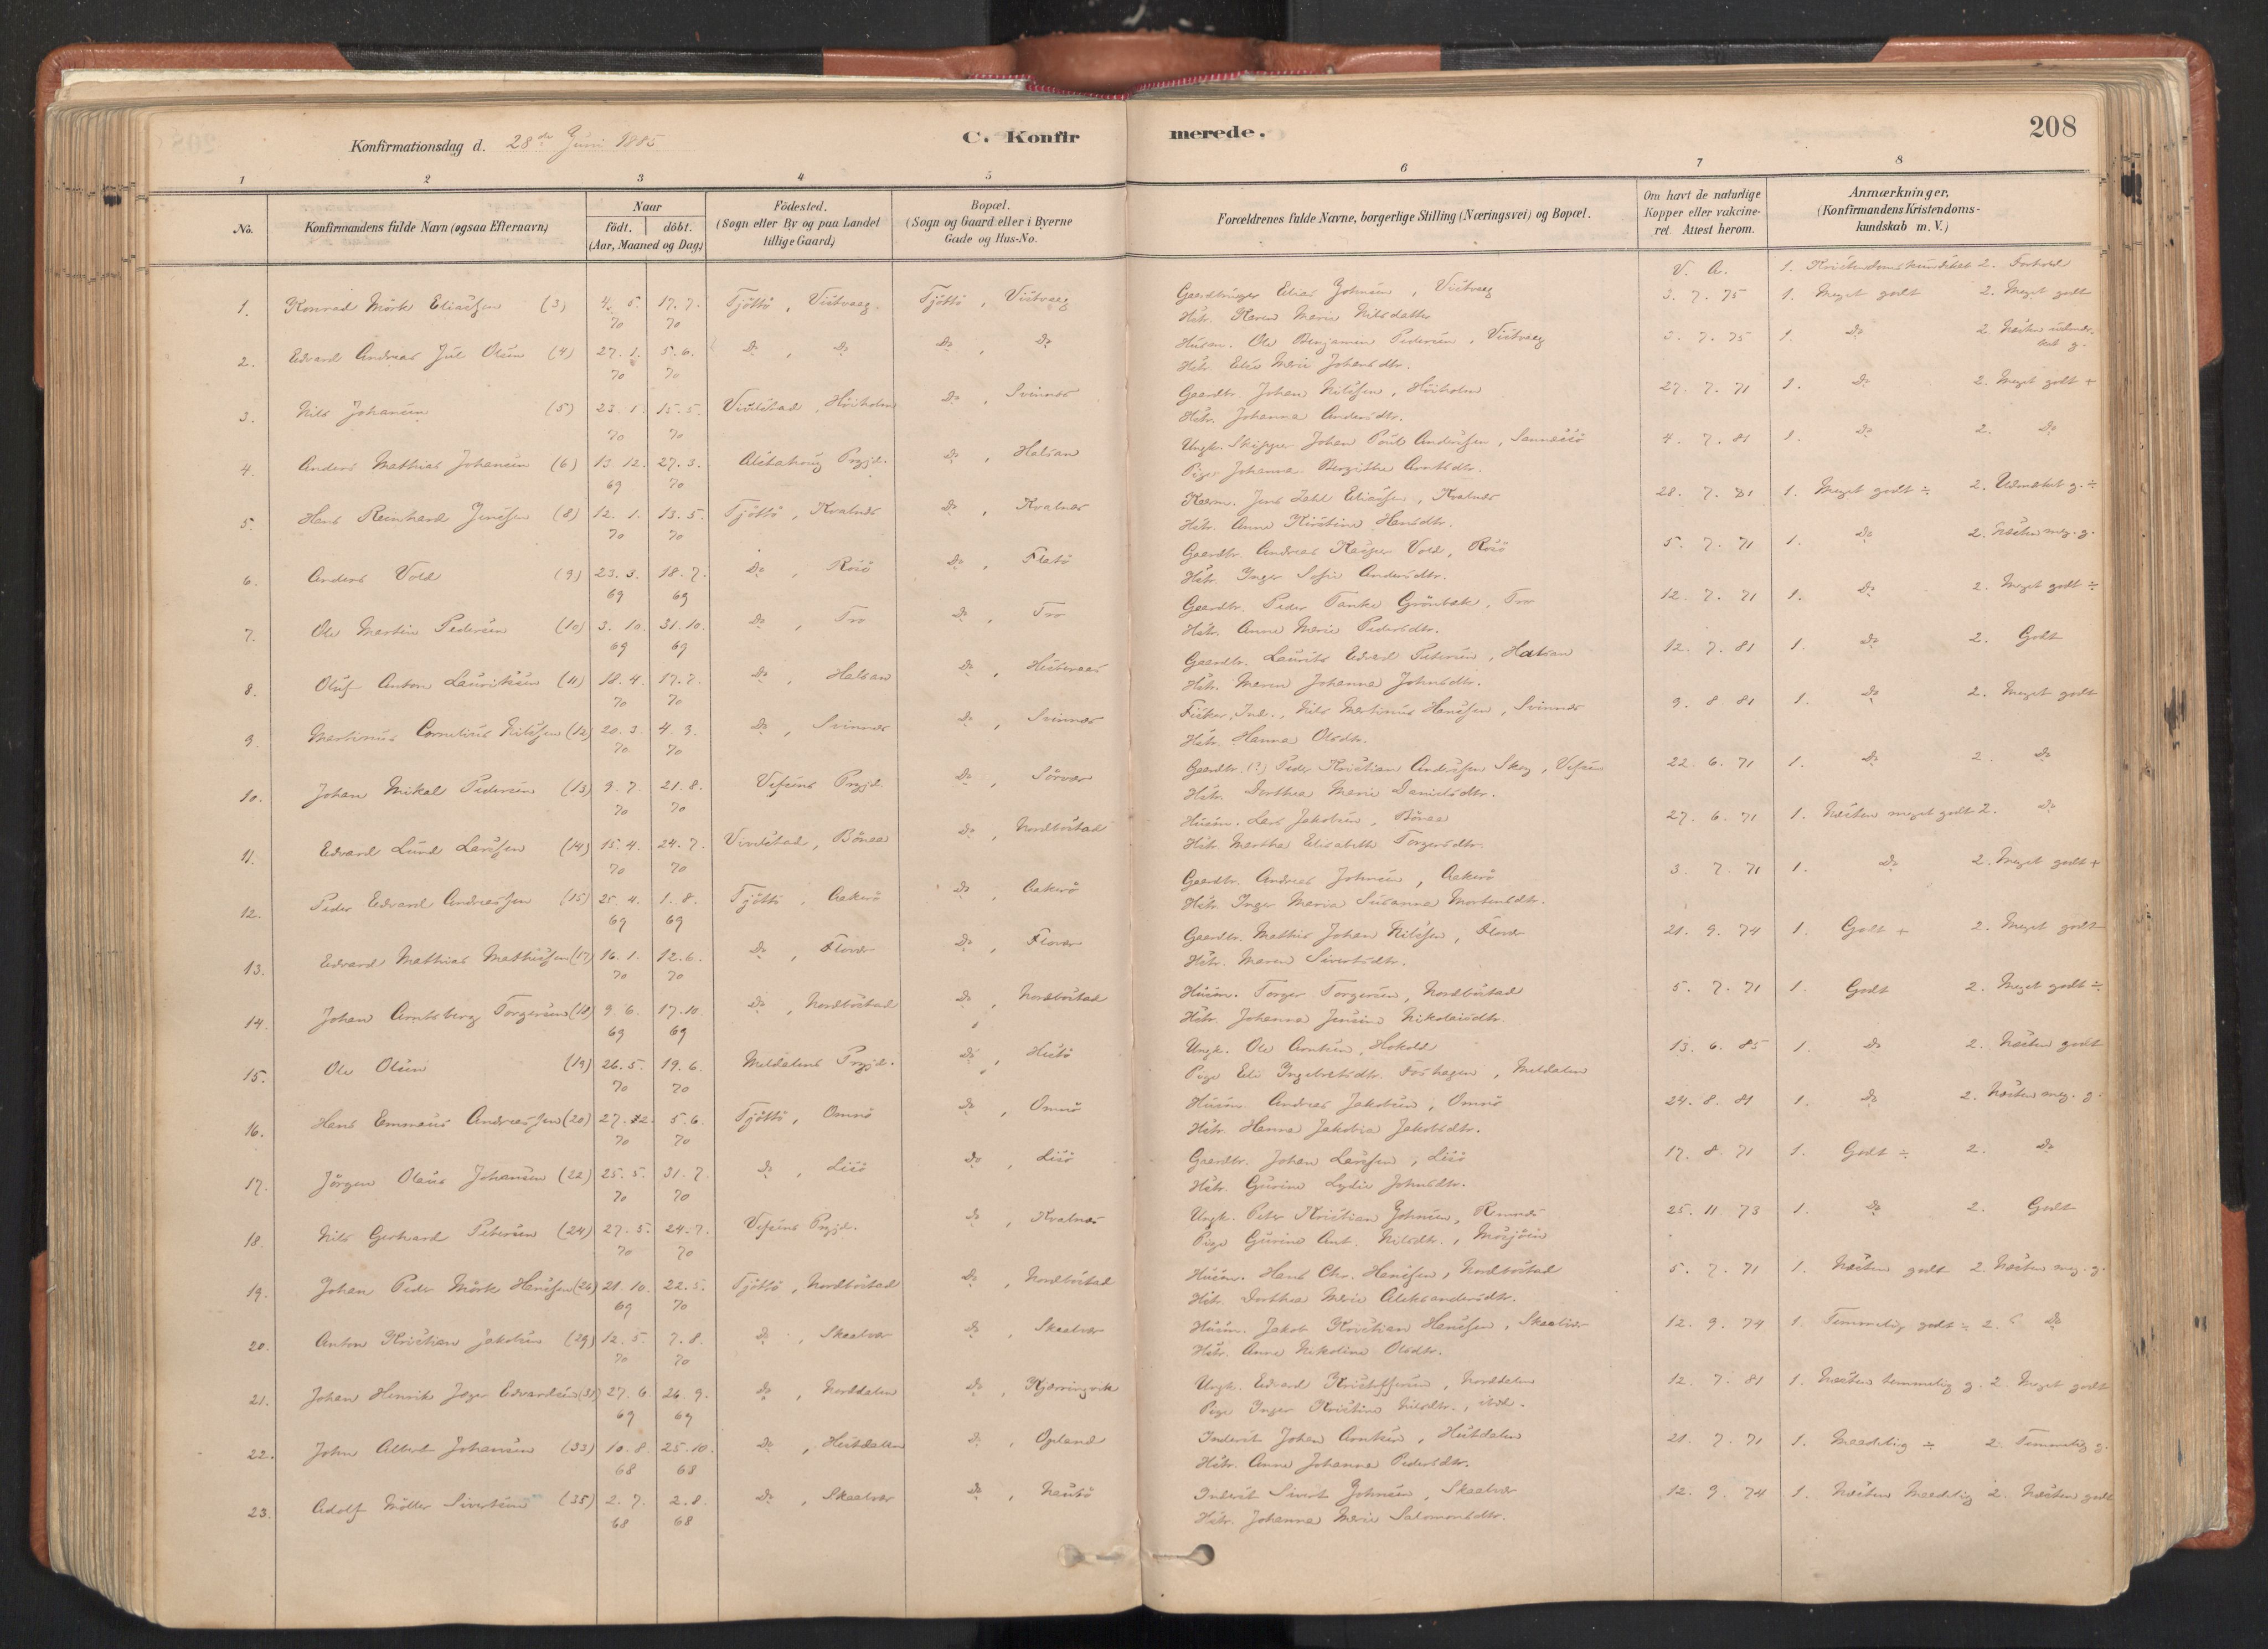 208
Konfirmationsdag d. 28de Juni 1885
C. Konfirmerede.
1 2 3 4 5 6 7 8
No.
Konfirmandens fulde Navn (ogsaa Efternavn)
Naar
födt. döbt.
(Aar, Maaned og Dag)
Födested.
(Sogn eller By og paa Landet
tillige Gaard)
Bopæl.
(Sogn og Gaard eller i Byerne
Gade og Hus-No.
Forældrenes fulde Navne, borgerlige Stilling (Næringsvei) og Bopæl.
Om havt de naturlige
Kopper eller vakcine-
ret. Attest herom.
Anmærkninger,
(Konfirmandens Kristendoms-
kundskab m. V.)
V. A. 1. Kristendomskundskab 2. Forhold
1. Konrad Mörk Eliassen (3) 4. 5. 70 17. 7. 70 Tjöttö, Vistvaag. Tjöttö, Vistvaag Gaardbruger Elias Johnsen, Vistvaag 3. 7. 75 1. Meget godt 2. Meget godt
Hstr. Karen Marie Nilsdatter
2. Edvard Andreas Jul Olsen (4) 27. 1. 70 5. 6. 70 Do, Do Do, Do Husm. Ole Benjamin Pedersen, Vistvaag 3. 7. 75 1. Do 2. Næsten udmær-
ket g.
Hstr. Elen Marie Johansdtr.
3. Nils Johansen (5) 23. 1. 70 15. 5. 70 Vivelstad, Höiholm Do, Svinnes Gaardbr. Johan Nilssen, Höiholm 27. 7. 71 1. Do 2. Meget godt +
Hstr. Johanna Andersdtr.
4. Anders Mathias Johansen (6) 13 12. 69 27. 3. 70 Alstahoug Prgjd. Do, Halsan Ungk. Skipper Johan Paul Anderssen, Sannessö 4. 7. 81 1. Do 2. Do
Pige Johanna Bergithe Arntsdtr.
5. Hans Reinhard Jenssen (8) 12. 1. 70 13. 5. 70 Tjöttö, Kvalnes Do, Kvalnes Husm. Jens Zahl Eliassen, Kvalnes 28. 7. 81 1. Meget godt ÷ 2. Udmærket g. ÷
Hstr. Anne Kirstine Hansdtr.
6. Anders Vold (9) 23. 3. 69 18. 7. 69 Do, Rosö Do, Flatö Gaardbr. Andreas Kasper Vold, Rosö 5. 7. 71 1. Do 2. Næsten meg. g.
Hstr. Inger Sofie Andersdtr.
7. Ole Martin Pedersen (10) 3. 10. 69 31. 10. 69 Do, Tro Do, Tro Gaardbr. Peder Tanke Grönbæk, Tro 12. 7. 71 1. Do 2. Meget godt ÷
Hstr. Anne Marie Pedersdtr.
8. Oluf Anton Lauritsen (11) 18. 4. 70 17. 7. 70 Do, Halsan Do, Hesteraas Gaardbr. Laurits Edvard Petersen, Halsan 12. 7. 81 1. Do 2. Godt
Hstr. Maren Johanna Johnsdtr.
9. Martinus Cornelius Nilssen (12) 20. 3. 70 4. 9. 70 Do, Svinnes Do, Svinnes Fisker, Ind., Nils Martinus Hanssen, Svinnes 9. 8. 81 1. Do 2. Meget godt
Hstr. Hanna Olsdtr.
10. Johan Mikal Pedersen (13) 9. 7. 70 21. 8. 70 Vefsens Prgjd. Do, Sörvær Gaardbr. (?) Peder Kristian Anderssen Skog, Vefsen 22. 6. 71 1. Do 2. Do
Hstr. Dorthea Marie Danielsdtr.
11. Edvard Lund Larssen (14) 15. 4. 70 24. 7. 70 Vivelstad, Bönaa Do, Nordbostad Husm. Lars Jakobsen, Bönaa 27. 6. 71 1. Næsten meget godt 2. Do
Hstr. Martha Elisabeth Torgersdtr.
12. Peder Edvard Andreassen (15) 25. 4. 69 1. 8. 69 Tjöttö, Aakerö Do, Aakerö Gaardbr. Andreas Johnsen, Aakerö 3. 7. 71 1. Do 2. Meget godt +
Hstr. Inger Maria Susanna Mortensdtr.
13. Edvard Mathias Mathissen (17) 16. 1. 70 12. 6. 70 Do, Flovær Do, Flovær Gaardbr. Mathis Johan Nilssen, Flovær 21. 9. 74 1. Godt + 2. Meget godt
Hstr. Maren Sivertsdtr.
14. Johan Arntsberg Torgersen (18) 9. 6. 69 17. 10. 69 Do, Nordbostad Do, Nordbostad Husm. Torger Torgersen, Nordbostad 5. 7. 71 1. Godt 2. Meget godt ÷
Hstr. Johanna Jensine Nikolaisdtr.
15. Ole Olsen (19) 26. 5. 70 19. 6. 70 Meldalens Prgjd. Do, Hestö Ungk. Ole Arntsen, Hokold 13. 6. 85 1. Do 2. Næsten godt
Pige Eli Ingebretsdtr. , Meldalen
16. Hans Emmaus Andreassen (20) 27. 2. 70 5. 6. 70 Tjöttö, Omnö Do, Omnö Husm. Andreas Jakobsen, Omnö 24. 8. 81 1. Do 2. Næsten meg. g.
Hstr. Hanna Jakobia Jakobsdtr.
17. Jörgen Olaus Johansen (22) 25. 5. 70 31. 7. 70 Do, Lisö Do, Lisö Gaardbr. Johan Larssen, Lisö 17. 8. 71 1. Godt ÷ 2. Do
Hstr. Gurine Lydia Johnsdtr.
18. Nils Gerhard Petersen (24) 27. 5. 70 24. 7. 70 Vefsens Prgjd. Do, Kvalnes Ungk. Peter Kristian Johnsen, Remnes 25. 11 73 1. Do 2. Godt
Pige Gurine Ant. Nilsdtr., Mosjöen
19. Johan Peder Mörk Hanssen (26) 21. 10. 69 22. 5. 70 Tjöttö, Nordbostad Do, Nordbostad Husm. Hans Chr. Hanssen, Nordbostad 5. 7. 71 1. Næsten godt 2. Næsten meg. g.
Hstr. Dorthea Marie Aleksandersdtr.
20. Anton Kristian Jakobsen (29) 12. 5 70 7. 8. 70 Do, Skaalvær Do, Skaalvær Husm. Jakob Kristian Hanssen, Skaalvær 12. 9. 74 1. Temmelig godt ÷ 2. Do
Hstr. Anne Nikoline Olsdtr.
21. Johan Henrik Jæger Edvardsen (31) 27. 6. 69 26. 9. 69 Do, Norddalen Do, Kjærringvik Ungk. Edvard Kristoffersen, Norddalen 12. 7. 81 1. Næsten temmelig g. 2. Meget godt
Pige Inger Kristine Nilsdtr., ibd.
22. John Albert Johansen (33) 10. 8. 68 25. 10. 68 Do, Hestdalen Do, Opland Inderst Johan Arntsen, Hestdalen 21. 7. 71 1. Maadelig ÷ 2. Temmelig g.
Hstr. Anne Johanna Pedersdtr.
23. Adolf Möller Sivertsen (35) 2. 7. 68 2. 8. 68 Do, Skaalvær Do, Nautö Inderst Sivert Johnsen, Skaalvær 12. 9. 74 1. Næsten Maadelig 2. Næsten godt
Hstr. Johanna Marie Salomonsdtr.